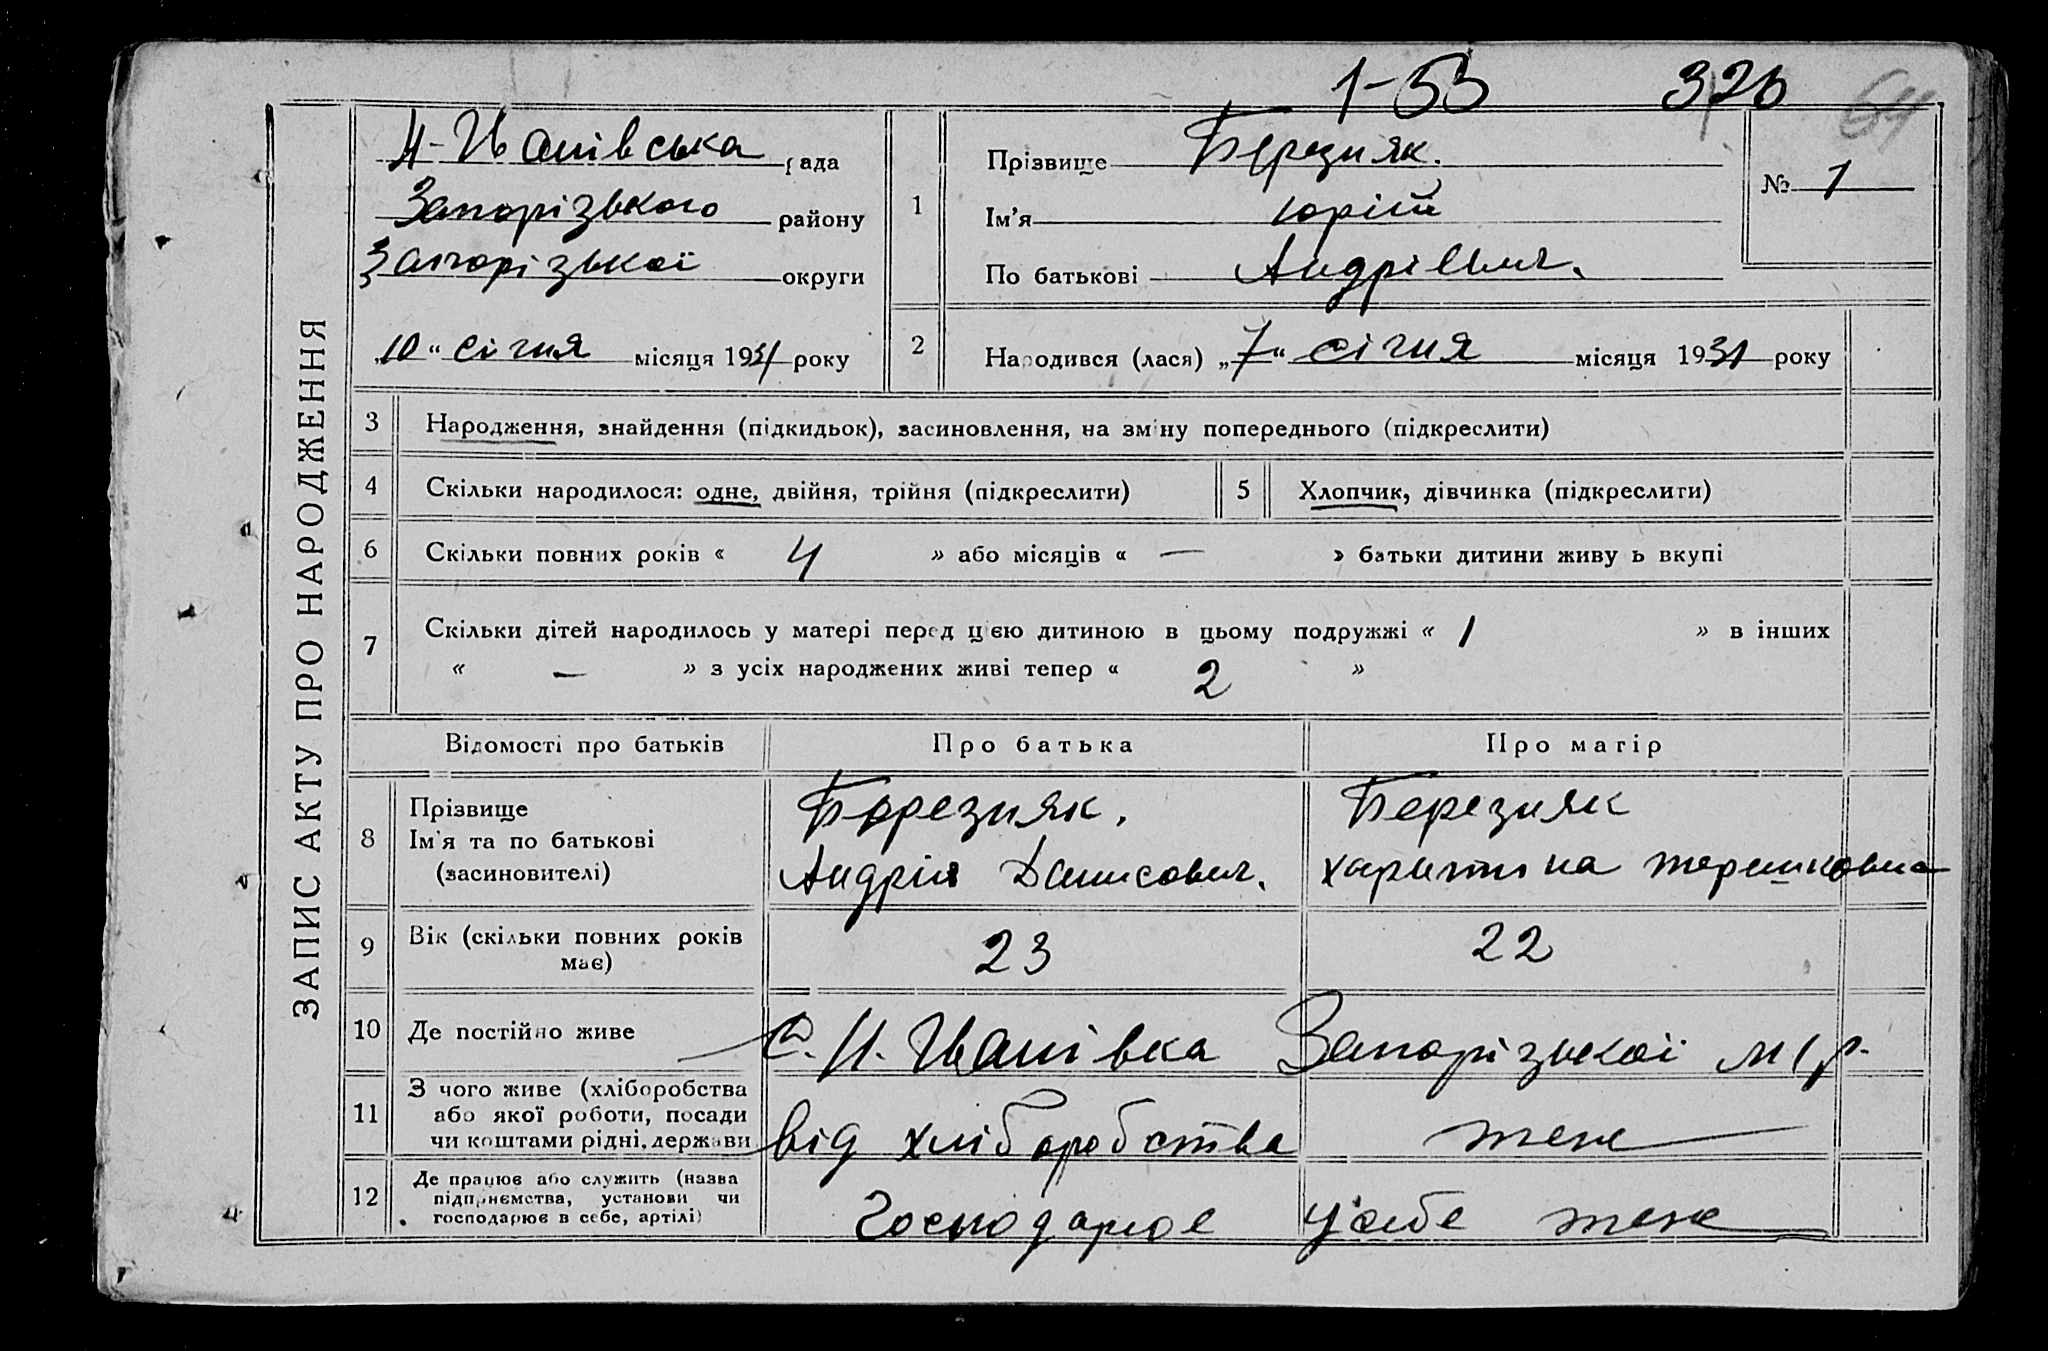 1-53 326 64
ЗАПИС АКТУ ПРО НАРОДЖЕННЯ
Н-Іванівська рада
Запорізького району
Запорізької округи
„10“ січня місяця 1931 року
1
Прізвище Березняк.
Ім'я Юрій
По батькові Андрієвич.
№ 1
2
Народився (лася) „7“ січня місяця 1931 року
3 Народження, знайдення (підкидьок), засиновлення, на зміну попереднього (підкреслити)
4 Скільки народилося: одне, двійня, трійня (підкреслити)
5 Хлопчик, дівчинка (підкреслити)
6 Скільки повних років « 4 » або місяців « — » батьки дитини живуть вкупі
7 Скільки дітей народилось у матері перед цією дитиною в цьому подружжі « 1 » в інших
« — » з усіх народжених живі тепер « 2 »
Відомості про батьків Про батька Про матір
8 Прізвище
Ім'я та по батькові
(засиновителі)
Березняк.
Андрій Данисович.
Березняк
Харитина Терешковна
9 Вік (скільки повних років
має)
23 22
10 Де постійно живе С. Н. Іванівка Запорізької м/р.
11 З чого живе (хліборобства
або якої роботи, посади
чи коштами рідні, держави
від хліборобства теж
12 Де працює або служить (назва
підприємства, установи чи
господарює в себе, артілі)
Господарює у себе теж